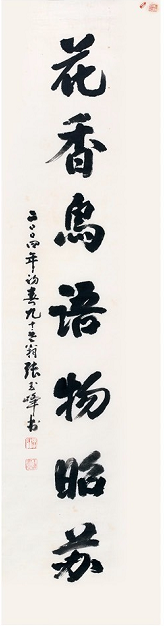 花香鸟语物昭苏
二〇〇四年初春九十老翁张玉峰书